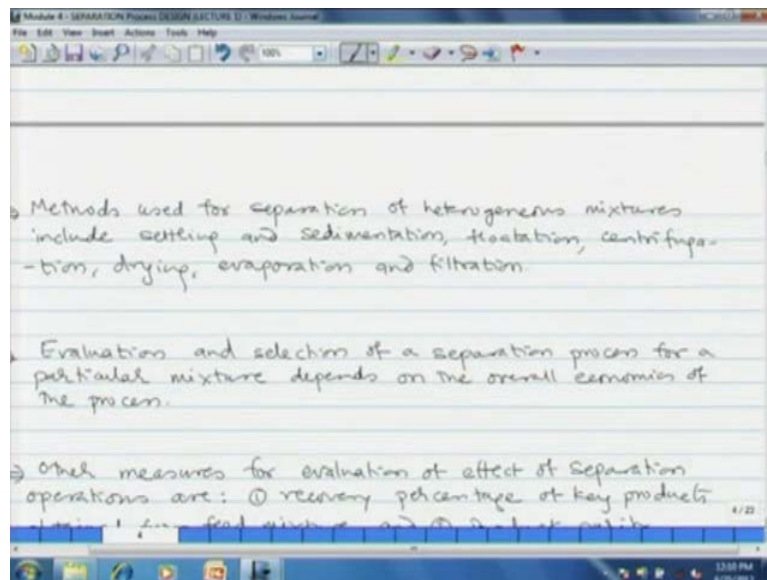 Module 4 - SEPARATION Process DESIGN (LECTURE 1) - Windows Journal
File Edit View Insert Actions Tools Help
100%
Methods used for separation of heterogeneous mixtures
include settling and sedimentation, floatation, centrifuga-
-tion, drying, evaporation and filtration.
Evaluation and selection of a separation process for a
particular mixture depends on the overall economics of
the process.
⇒ Other measures for evaluation of effect of separation
operations are: ① recovery percentage of key products
from feed mixture and ② product
4/22
4
12:10 PM